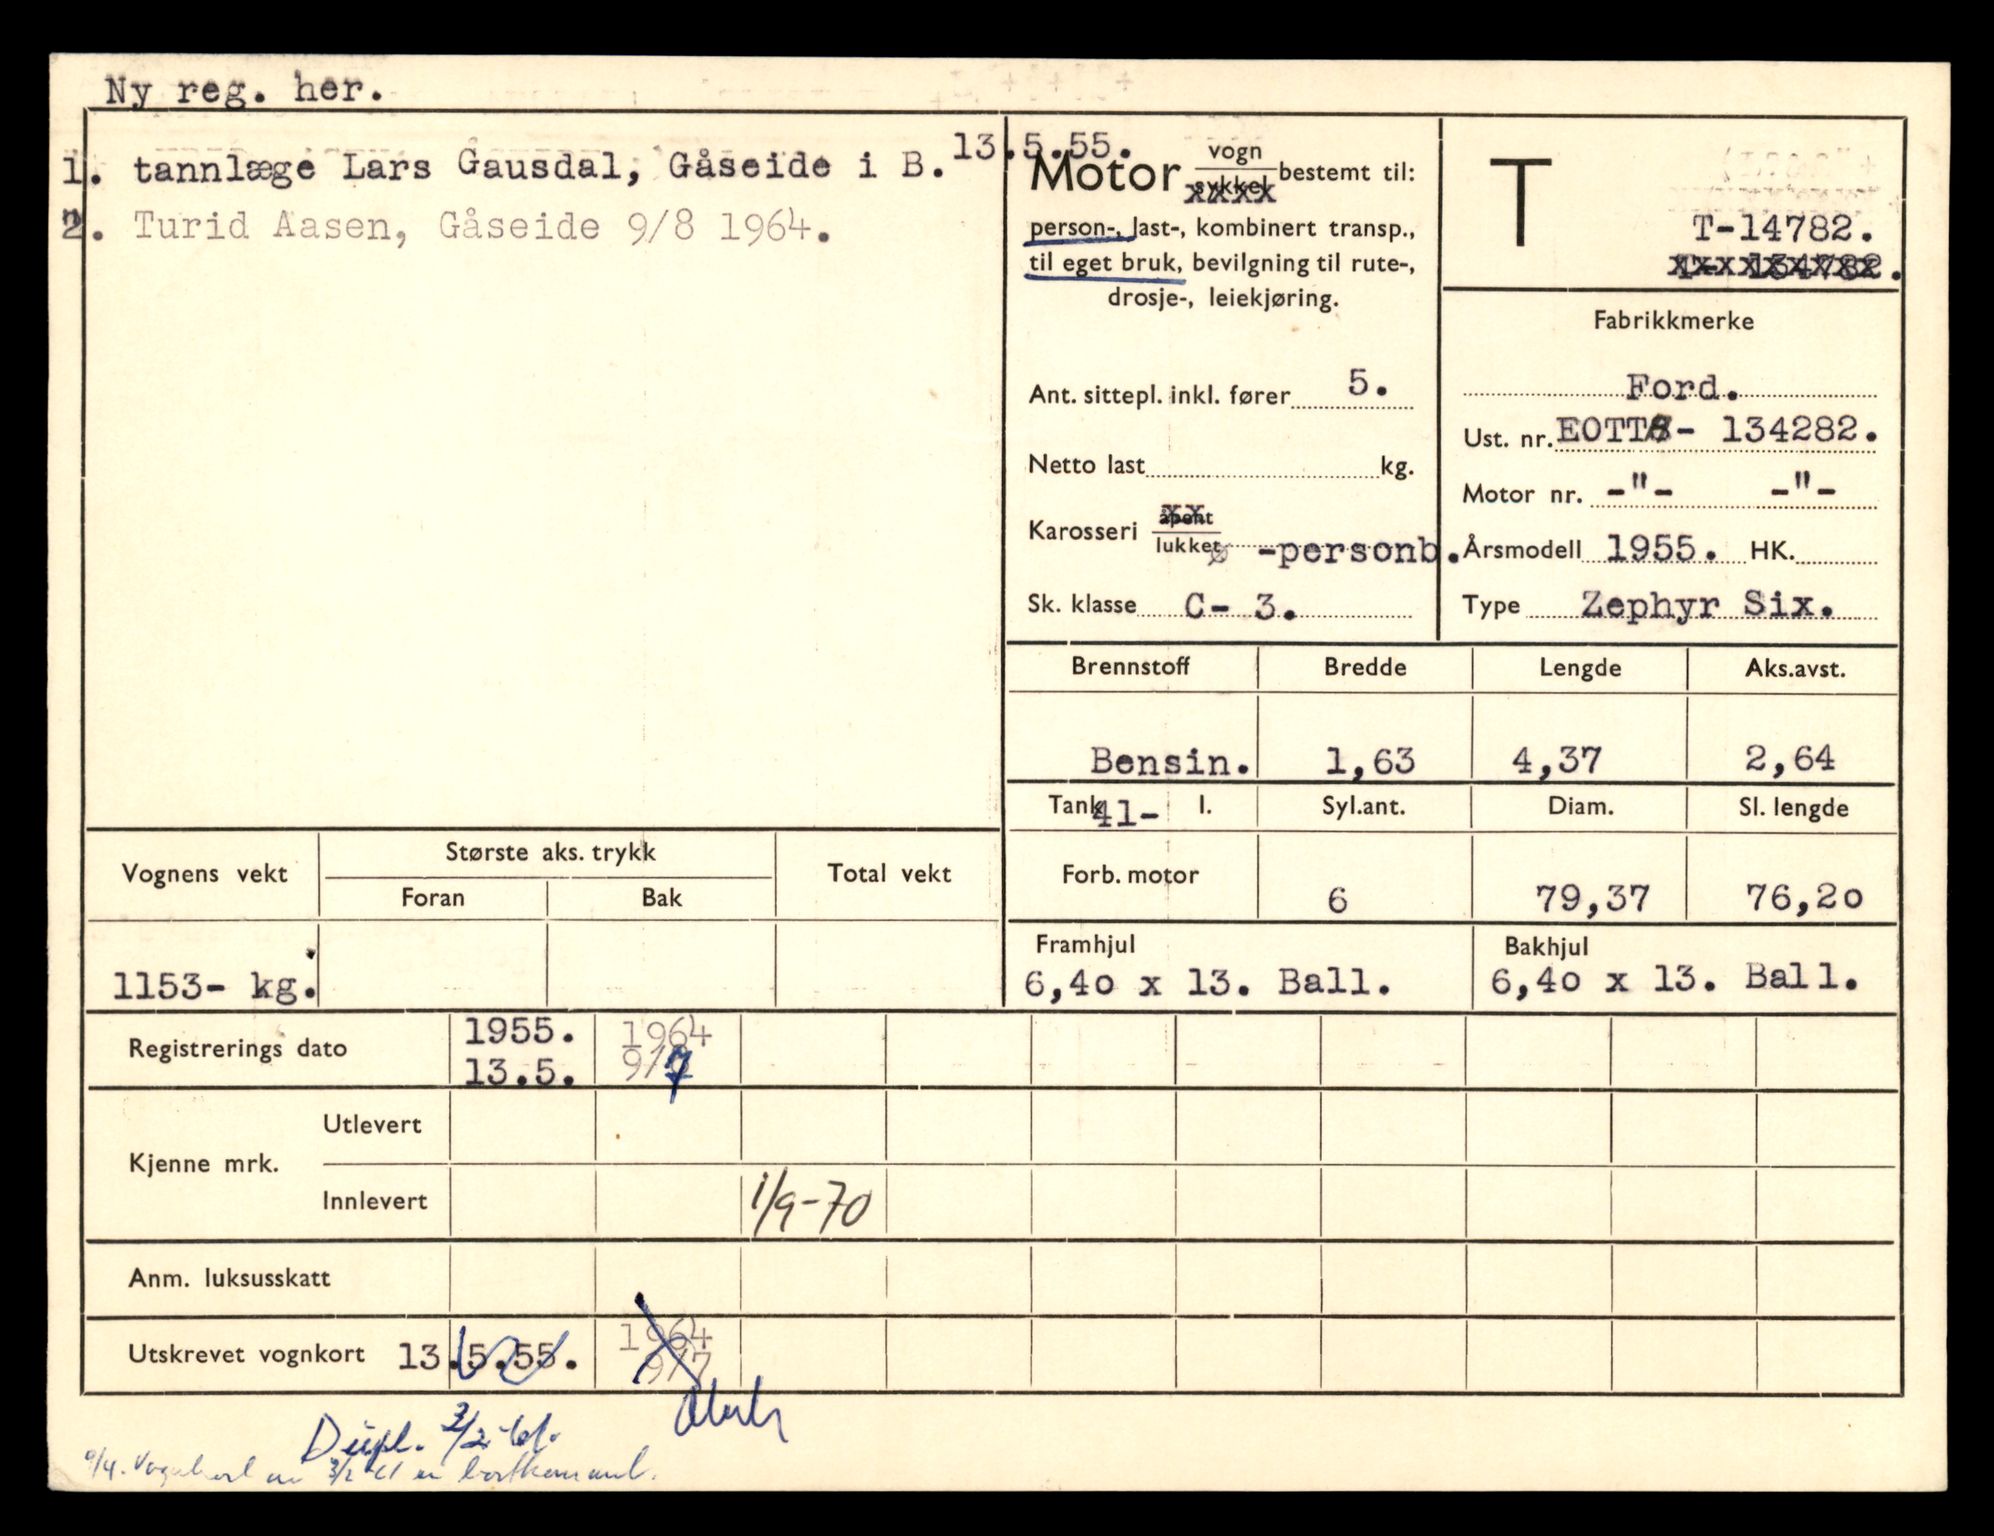 Ny reg. her.
1. tannlæge Lars Gausdal, Gåseide i B. 13.5.55.
2. Turid Aasen, Gåseide 9/8 1964.
Motor vogn
sykkel bestemt til:
person-, last-, kombinert transp.,
til eget bruk, bevilgning til rute-,
drosje-, leiekjøring.
Ant. sittepl. inkl. fører 5.
Netto last kg.
Karosseri åpent
lukket -personb.
Sk. klasse C- 3.
T
T-14782.
T- 134782.
Fabrikkmerke
Ford.
Ust. nr. EOTT - 134282.
Motor nr. -"- -"-
Årsmodell 1955. HK.
Type Zephyr Six.
Brennstoff Bredde Lengde Aks.avst.
Bensin. 1,63 4,37 2,64
Tank 41- l. Syl.ant. Diam. Sl. lengde
Forb. motor 6 79,37 76,20
Framhjul Bakhjul
6,40 x 13. Ball. 6,40 x 13. Ball.
Vognens vekt Største aks. trykk Total vekt
Foran Bak
1153- kg.
Registrerings dato 1955. 1964
13.5. 9/7
Kjenne mrk. Utlevert
Innlevert 1/9-70
Anm. luksusskatt
Utskrevet vognkort 13.5.55. 1964
9/7
Dupl. 3/2-61.
9/4. Vognkort av 3/2 61 er bortkommet.